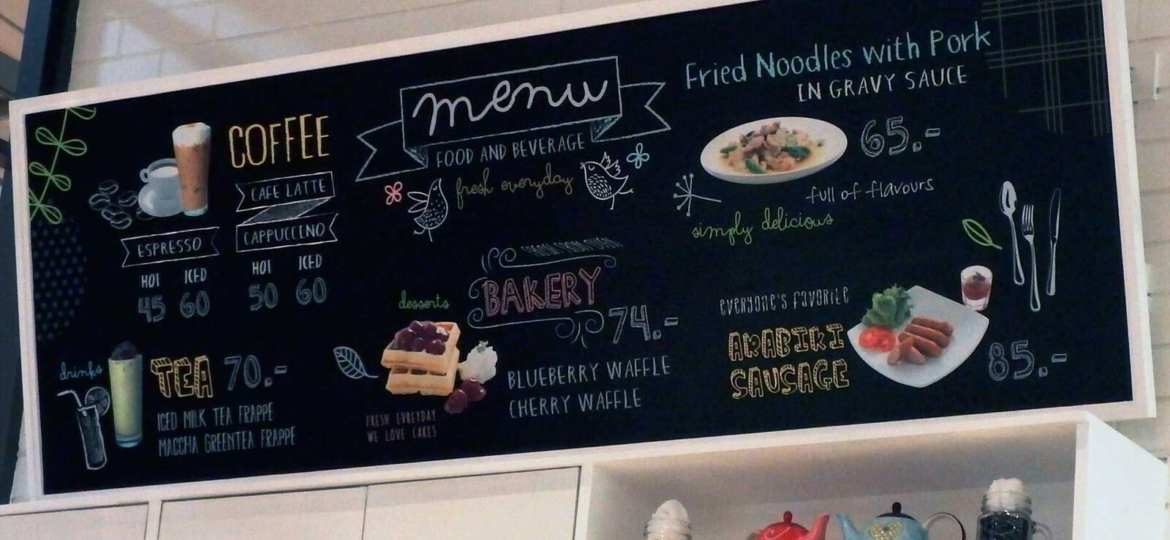 menu
FOOD AND BEVERAGE
fresh everyday
COFFEE
CAFE LATTE
CAPPUCCINO
HOT ICED
50 60
ESPRESSO
HOT ICED
45 60
drinks
TEA 70.-
ICED MILK TEA FRAPPE
MACCHA GREENTEA FRAPPE
desserts
BAKERY
74.-
BLUEBERRY WAFFLE
CHERRY WAFFLE
FRESH EVREYDAY
WE LOVE CAKES
Fried Noodles with Pork
IN GRAVY SAUCE
65.-
full of flavours
simply delicious
everyone's favorite
ARABIKI
SAUSAGE
85.-